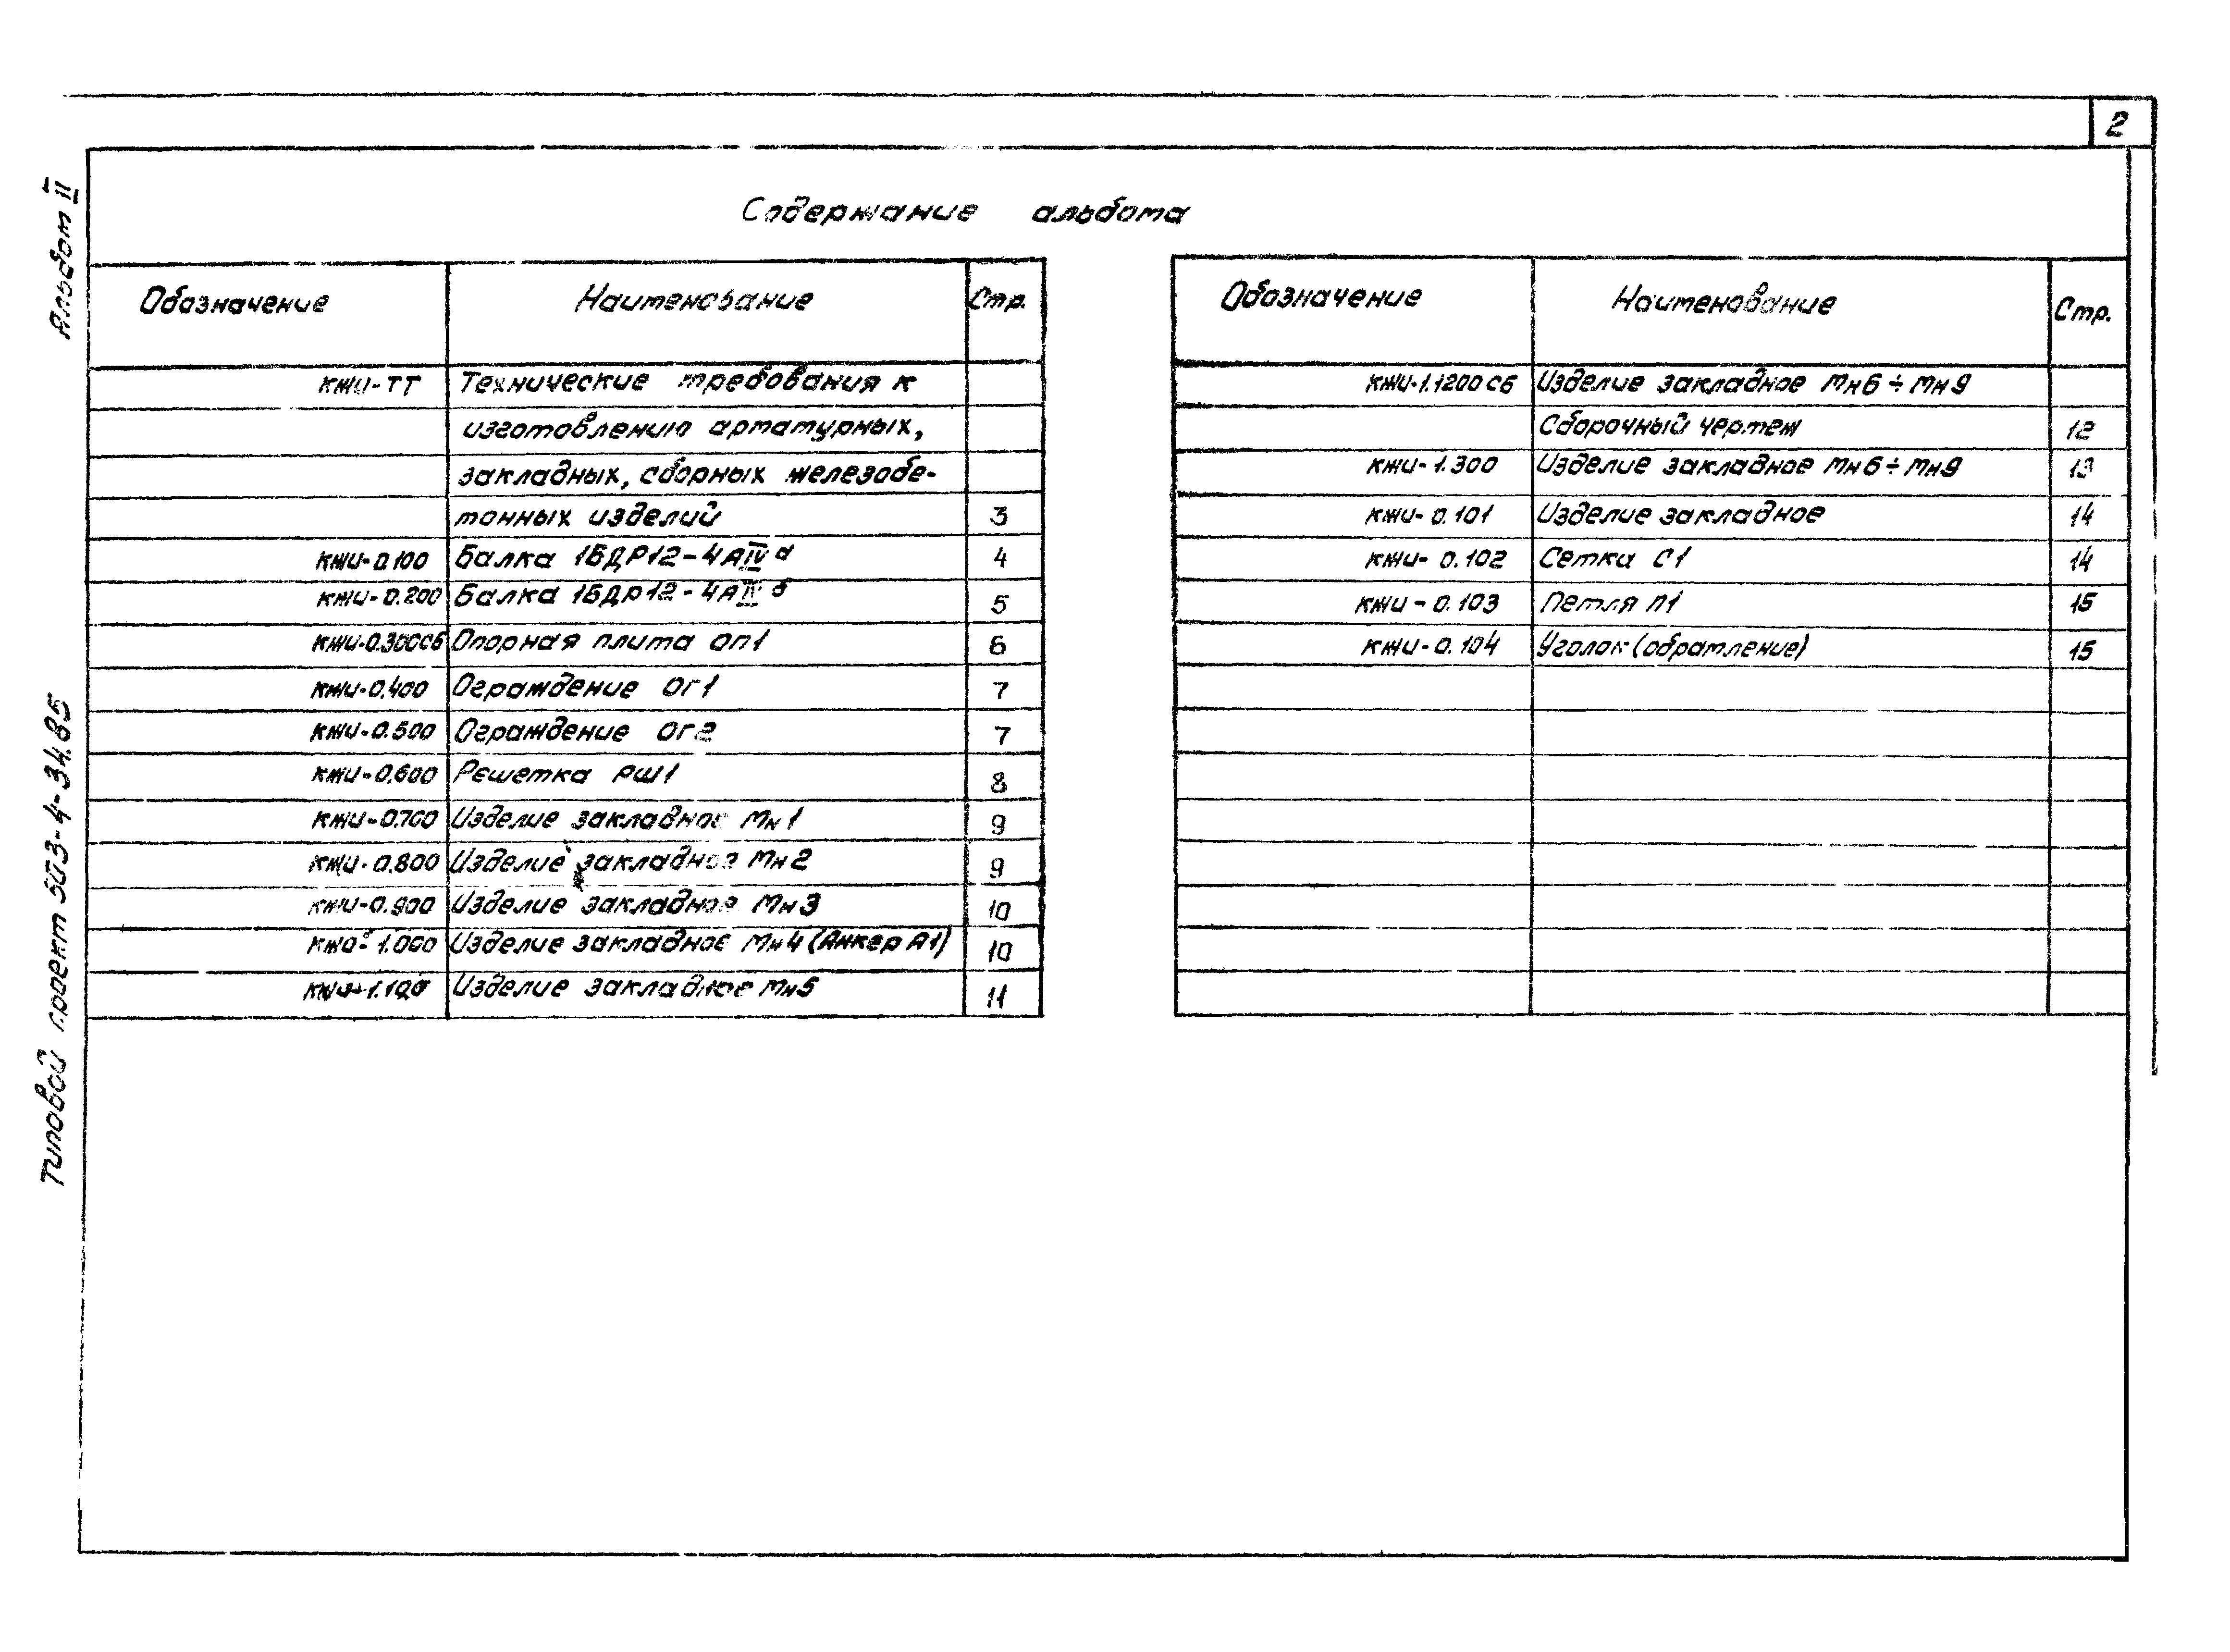 2
Альбом II
Типовой проект 503-4-34.85
Содержание альбома
Обозначение Наименование Стр.
КЖИ-ТТ Технические требования к
изготовлению арматурных,
закладных, сборных железобе-
тонных изделий 3
КЖИ-0.100 Балка 1БДР12-4АIVа 4
КЖИ-0.200 Балка 1БДР12-4АIVб 5
КЖИ-0.300СБ Опорная плита ОП1 6
КЖИ-0.400 Ограждение ОГ1 7
КЖИ-0.500 Ограждение ОГ2 7
КЖИ-0.600 Решетка РШ1 8
КЖИ-0.700 Изделие закладное Мн1 9
КЖИ-0.800 Изделие закладное Мн2 9
КЖИ-0.900 Изделие закладное Мн3 10
КЖИ-1.000 Изделие закладное Мн4 (Анкер А1) 10
КЖИ-1.100 Изделие закладное Мн5 11
Обозначение Наименование Стр.
КЖИ-1.1200СБ Изделие закладное Мн6÷Мн9
Сборочный чертеж 12
КЖИ-1.300 Изделие закладное Мн6÷Мн9 13
КЖИ-0.101 Изделие закладное 14
КЖИ-0.102 Сетка С1 14
КЖИ-0.103 Петля П1 15
КЖИ-0.104 Уголок (обрамление) 15